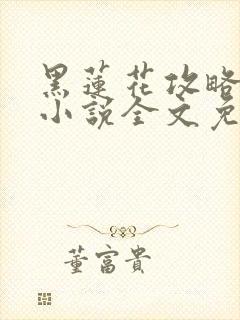 黑蓮花攻略
小說全文免
董富貴